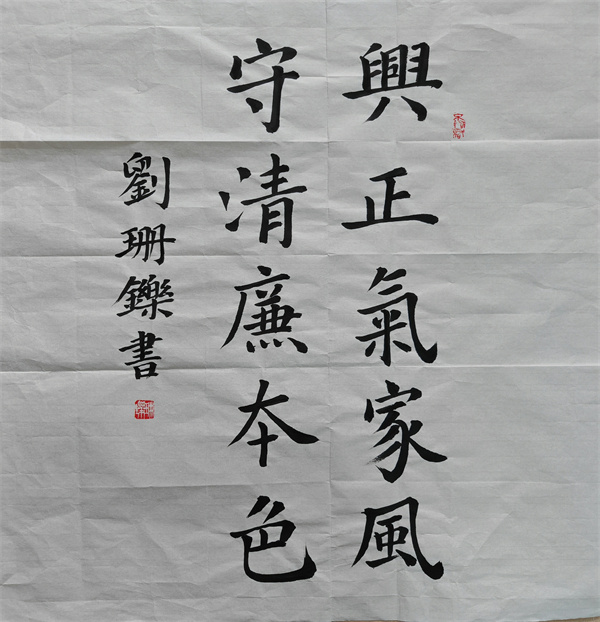 興正氣家風
守清廉本色
劉珊鑠書